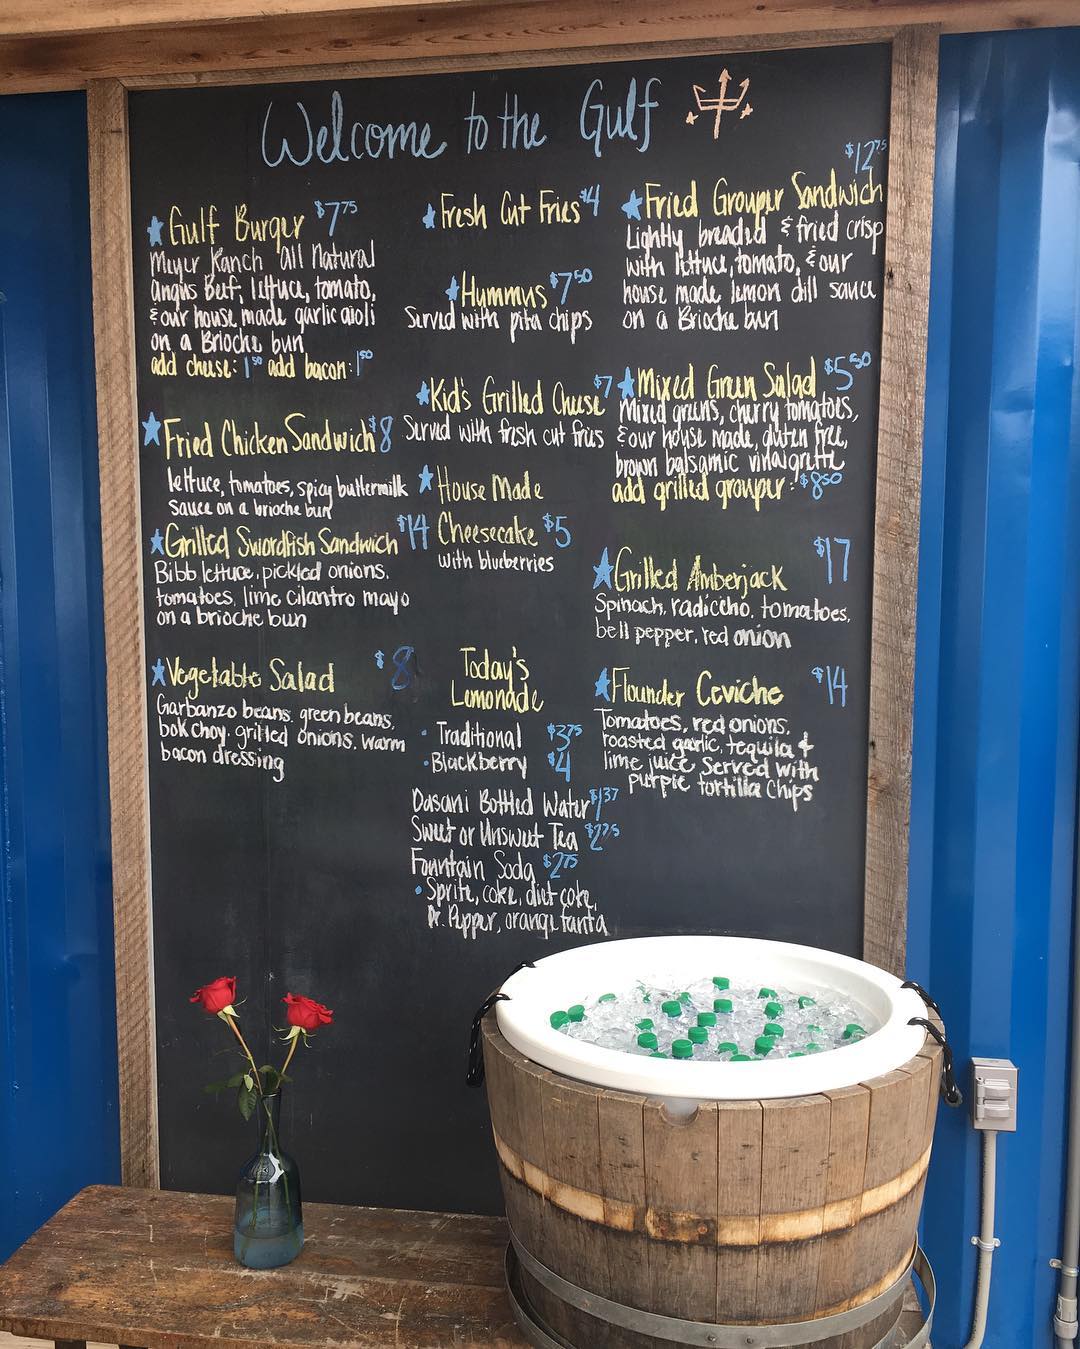 Welcome to the Gulf
Gulf Burger $7.75
Meyer Ranch all Natural
angus Beef, lettuce, tomato,
& our house made garlic aioli
on a Brioche bun
add cheese: 1.50 add bacon: 1.50
Fried Chicken Sandwich 8
lettuce, tomatoes, spicy buttermilk
sauce on a brioche bun
Grilled Swordfish Sandwich $14
Bibb lettuce, pickled onions,
tomatoes, lime cilantro mayo
on a brioche bun
Vegetable Salad $8
Garbanzo beans, green beans,
bok choy, grilled onions, warm
bacon dressing
Fresh Cut Fries $4
Hummus $7.50
Served with pita chips
Kid's Grilled Cheese $7
Served with fresh cut fries
House Made
Cheesecake $5
with blueberries
Today's
Lemonade
· Traditional $3.75
· Blackberry $4
Dasani Bottled Water $1.37
Sweet or Unsweet Tea $2.75
Fountain Soda $2.75
· Sprite, coke, diet coke,
Dr. Pepper, orange fanta
$12.75
Fried Grouper Sandwich
Lightly breaded & fried crisp
with lettuce, tomato, & our
house made lemon dill sauce
on a Brioche bun
Mixed Green Salad $5.50
Mixed greens, cherry tomatoes,
& our house made, gluten free,
brown balsamic vinaigrette
add grilled grouper: $8.50
Grilled Amberjack $17
Spinach, radiccho, tomatoes,
bell pepper, red onion
Flounder Ceviche $14
Tomatoes, red onions,
roasted garlic, tequila &
lime juice served with
purple tortilla chips